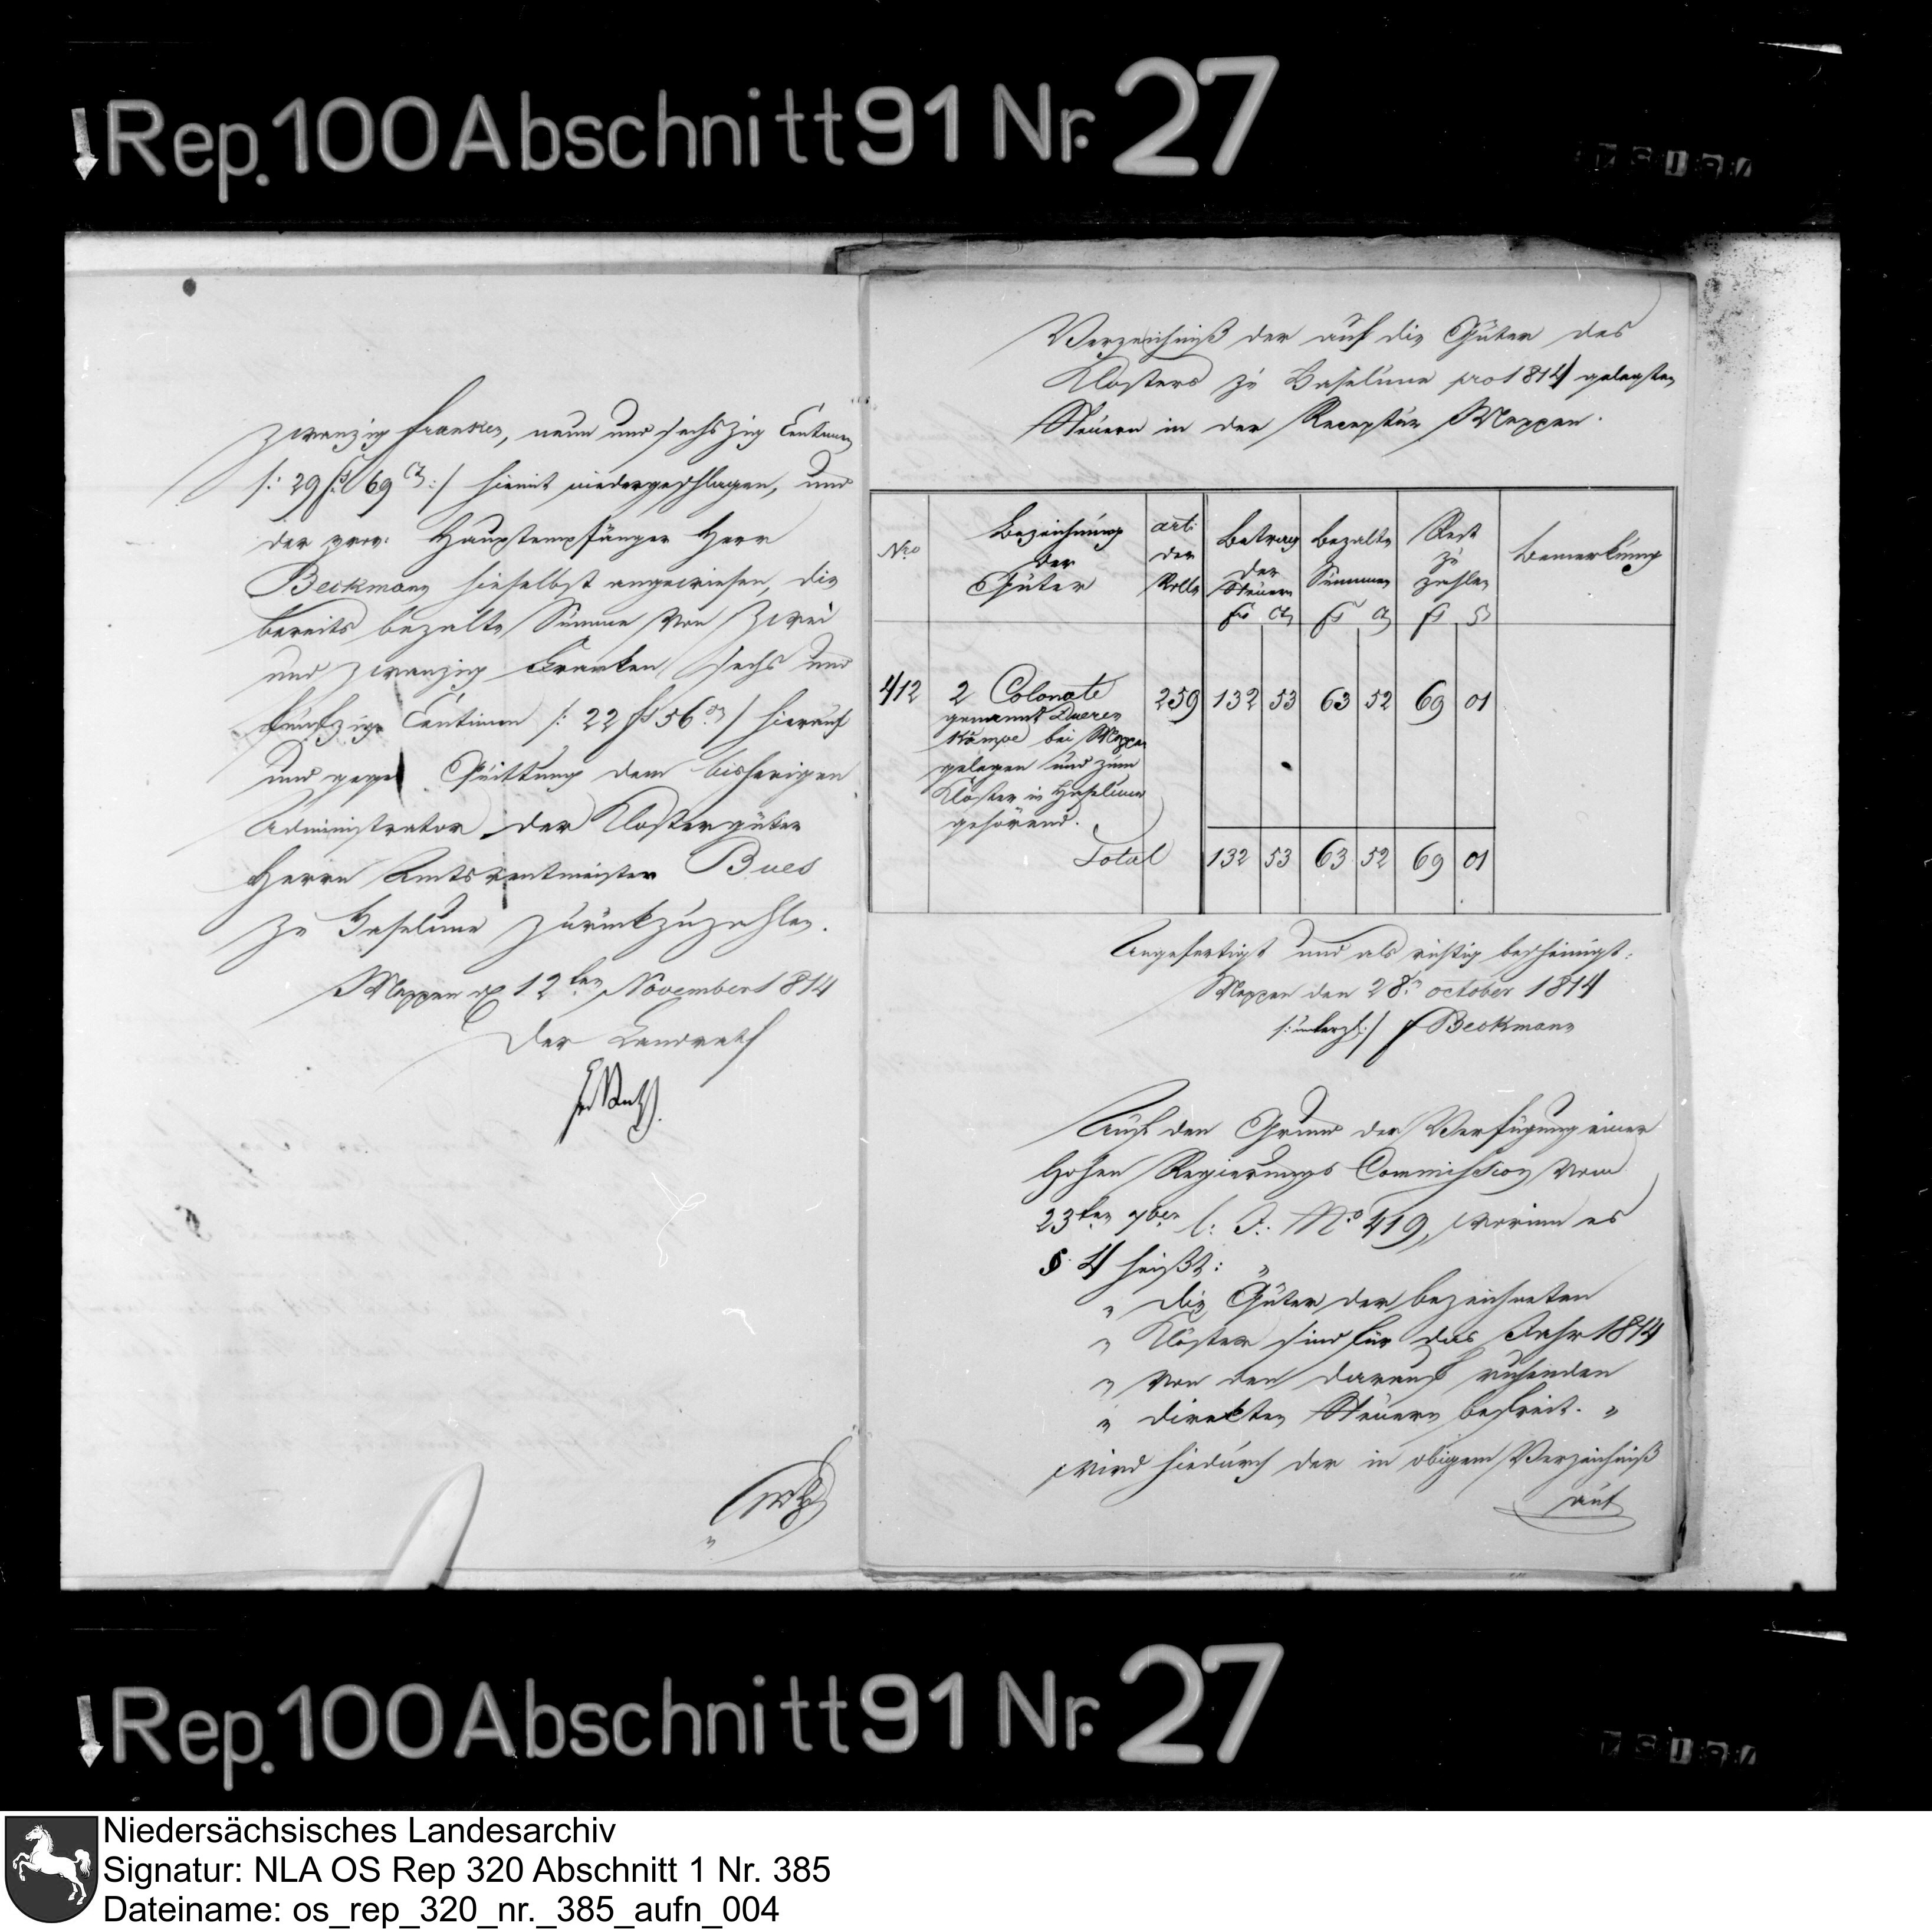 Rep. 100 Abschnitt 91 Nr. 27
zwanzig Franken, neun und sechszig Centimen
/: 29 fs 69 Ct :/ hiemit niedergeschlagen, und
der prov: Hauptempfänger Herr
Beckmann hieselbst angewiesen, die
bereits bezalte Summe von Zwei
und zwanzig Franken sechs und
fünfzige Centimen /: 22 fs 56 Ct / hierauf
und gegen Quittung dem bisherigen
Administrator der Klostergüter
Herrn Amtsrentmeister Bues
zu Haselünne zurückzuzahlen.
Meppen d 12ten November 1814
Der Landrath
Verzeichniß der auf die Güter des
Klosters zu Haselünne pro 1814 gelegten
Steuern in der Receptur Meppen.
Nro
Bezeichnung der Güter
art: der Rolle
Betrag der Steuern
Bezalte Summen
Rest zu zahlen
Bemerkung
fs Ct fs Ct fs Ct
412 2 Colonate 259 132 53 63 52 69 01
genannt Dueren
Kämpe bei Meppen
gelegen und zum
Kloster in Haselünne
gehörend.
Total 132 53 63 52 69 01
Angefertigt und als richtig bescheinigt:
Meppen den 28n october 1814
/: unterz: / Beckmann
Auf den Grund der Verfügung einer
Hohen Regierungs Commission vom
23ten 7ber l: J: No 419, worinn es
§ 4 heißt: "
" Die Güter der bezeichneten
" Klöster sind für das Jahr 1814
" von den darauf ruhenden
" direkten Steuern befreit. "
wird hiedurch der in obigem Verzeichniß
auf
Rep. 100 Abschnitt 91 Nr. 27
Niedersächsisches Landesarchiv
Signatur: NLA OS Rep 320 Abschnitt 1 Nr. 385
Dateiname: os_rep_320_nr._385_aufn_004